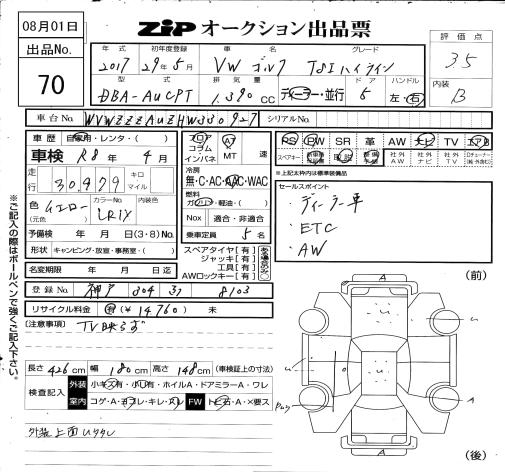 08月01日
出品No.
70
ZIP オークション出品票
評価点
3.5
内装
B
年式 初年度登録 車名 グレード
2017 29年5月 VW ゴルフ TSIハイライン
型式 排気量 ドア ハンドル
DBA-AUCPT 1.390cc ディーラー・並行 5 左・右
車台No. WVWZZZAUZHW330927 シリアルNo.
車歴 自家用・レンタ・( )
車検 R8年4月
走行 30,979 キロ マイル
色 (元色) イエロー カラーNo. LR1Y 内装色
予備検 年 月 日(3・8)No.
形状 キャンピング・放宣・事務室・( )
名変期限 年 月 日迄
フロア コラム インパネ
AT MT 速
冷房
無・C・AC・AAC・WAC
燃料
ガソリン・軽油・( )
Nox 適合・非適合
乗車定員 5名
スペアタイヤ【有】
ジャッキ【有】
工具【有】
AWロックキー【有】
PS PW SR 革 AW ナビ TV エアB
スペアキー 社外AW 社外ナビ 社外TV
*上記太枠内は標準装備品
セールスポイント
・ディーラー車
・ETC
・AW
登録No. 神戸 304 ス 8103
リサイクル料金 有(¥14760) 未
(注意事項) TV映らず
長さ 426cm 幅 180cm 高さ 148cm (車検証上の寸法)
検査記入 外装 小キズ有・小凹有・ホイルA・ドアミラーA・ワレ
室内 コゲ・A・ヨゴレ・キレ・スレ FW トビ石・A・×要ス
外装上面Uタタレ
※ご記入の際はボールペンで強くご記入下さい。
(前)
A
u
u
u
A
A
A
(後)